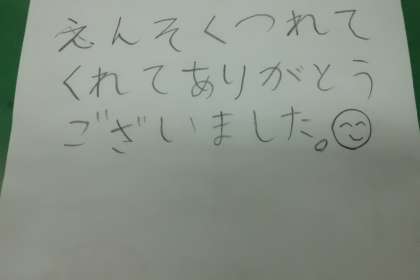 えんそくつれて
くれてありがとう
ございました。